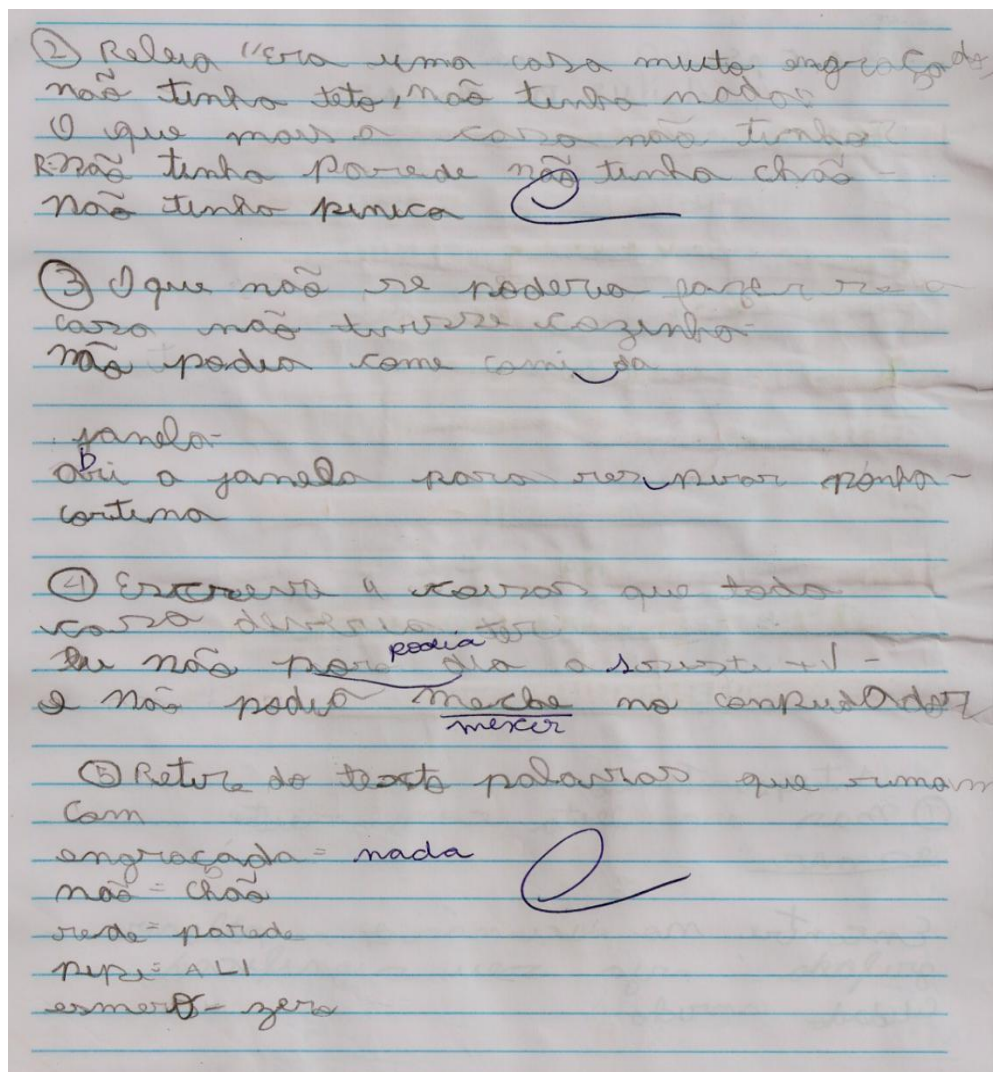 ② Releia "Era uma casa muito engraçada,
não tinha teto, não tinha nada"
O que mais a casa não tinha
R-não tinha parede não tinha chão -
não tinha pinica
③ O que não se poderia fazer se a
casa não tivesse cozinha-
não podia come comi da
janela-
abri a janela para respirar ponha-
cortina
④ Escreva 4 coisas que toda
casa deveria ter
podia
Eu não para dia a sisisti tv -
e não podia meche no conpudador
mexer
⑤ Retire do texto palavras que rimam
com
engraçada = nada
não = chão
rede = parede
pipi = ALI
esmero - zero